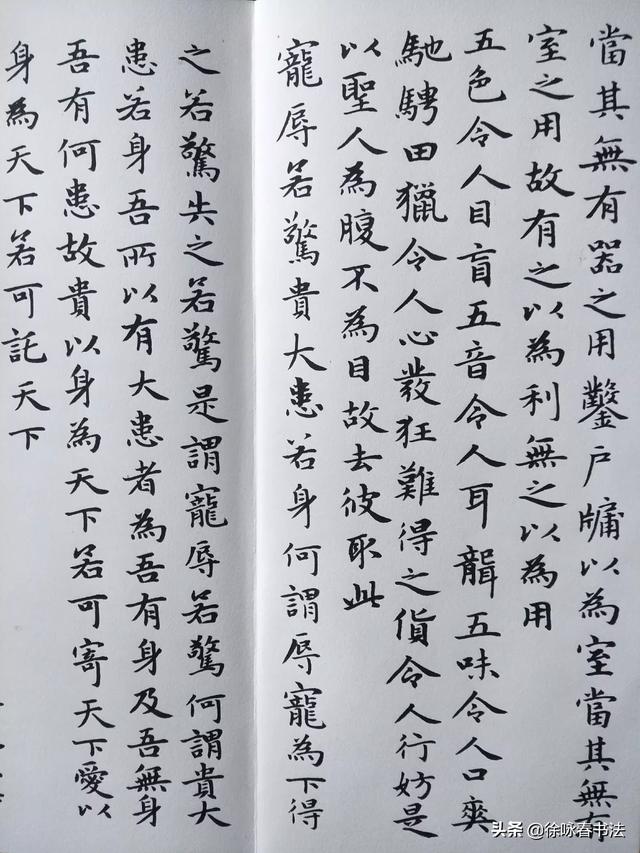 當其無有器之用鑿户牗以為室當其無有
室之用故有之以為利無之以為用
五色令人目盲五音令人耳聾五味令人口爽
馳騁田獵令人心發狂難得之貨令人行妨是
以聖人為腹不為目故去彼取此
寵辱若驚貴大患若身何謂辱寵為下得
之若驚失之若驚是謂寵辱若驚何謂貴大
患若身吾所以有大患者為吾有身及吾無身
吾有何患故貴以身為天下若可寄天下愛以
身為天下若可託天下
头条 @徐咏春书法